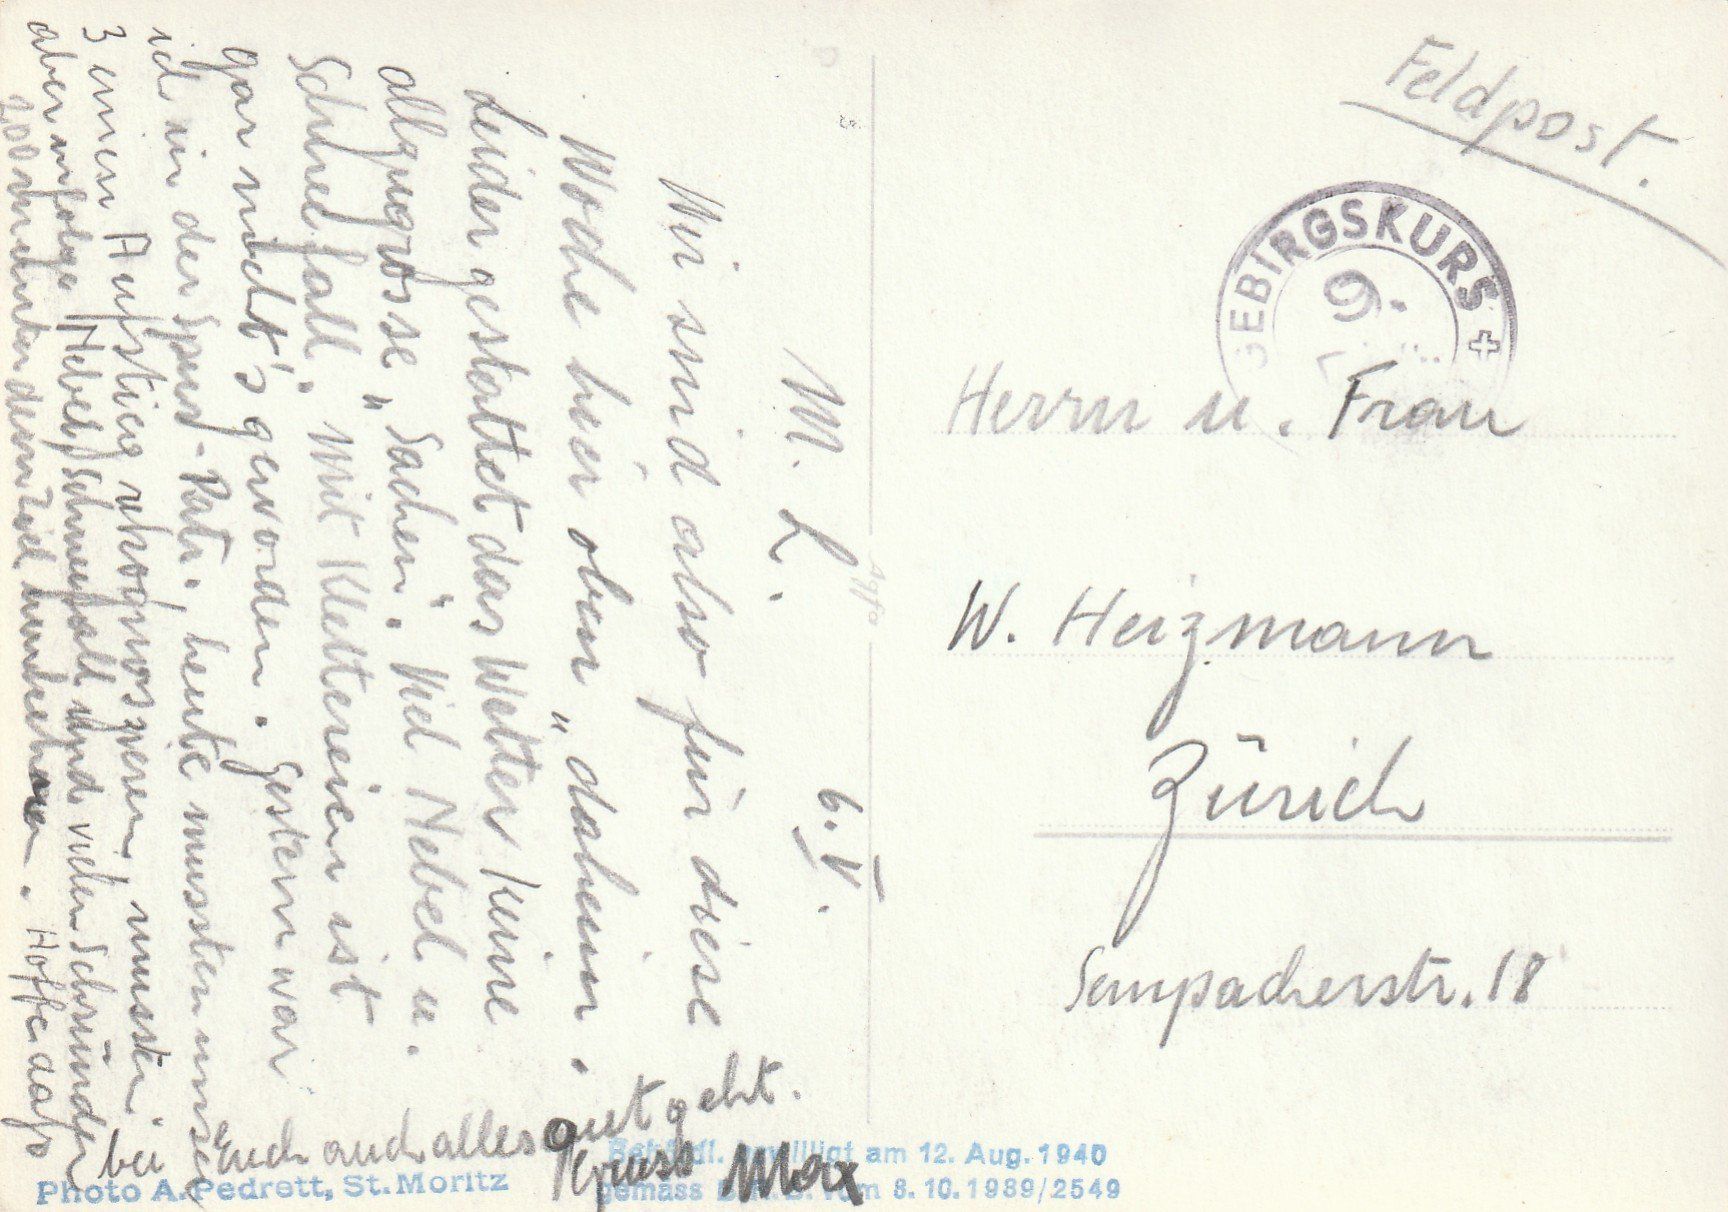 Feldpost.
GEBIRGSKURS
9.
Herrn u. Frau
W. Heizmann
Zürich
Sempacherstr. 18
6. V.
M. L.
Wir sind also für diese
Woche hier oben "daheim.
Leider gestattet das Wetter keine
allzugrosse "Sachen". Viel Nebel u.
Schneefall. Mit Klettereien ist
gar nicht's geworden. Gestern war
ich in der Spur-Patr. heute mussten unser
3 einen Aufstieg rekognoszieren, mussten
aber infolge Nebel, Schneefall und vielen Schründen
200 m unter dem Ziel umkehren. Hoffe dass
bei Euch auch alles gut geht.
Gruss Max
Agfa
Photo A. Pedrett, St. Moritz
Behördl. bewilligt am 12. Aug. 1940
gemäss vom 3. 10. 1939/2549